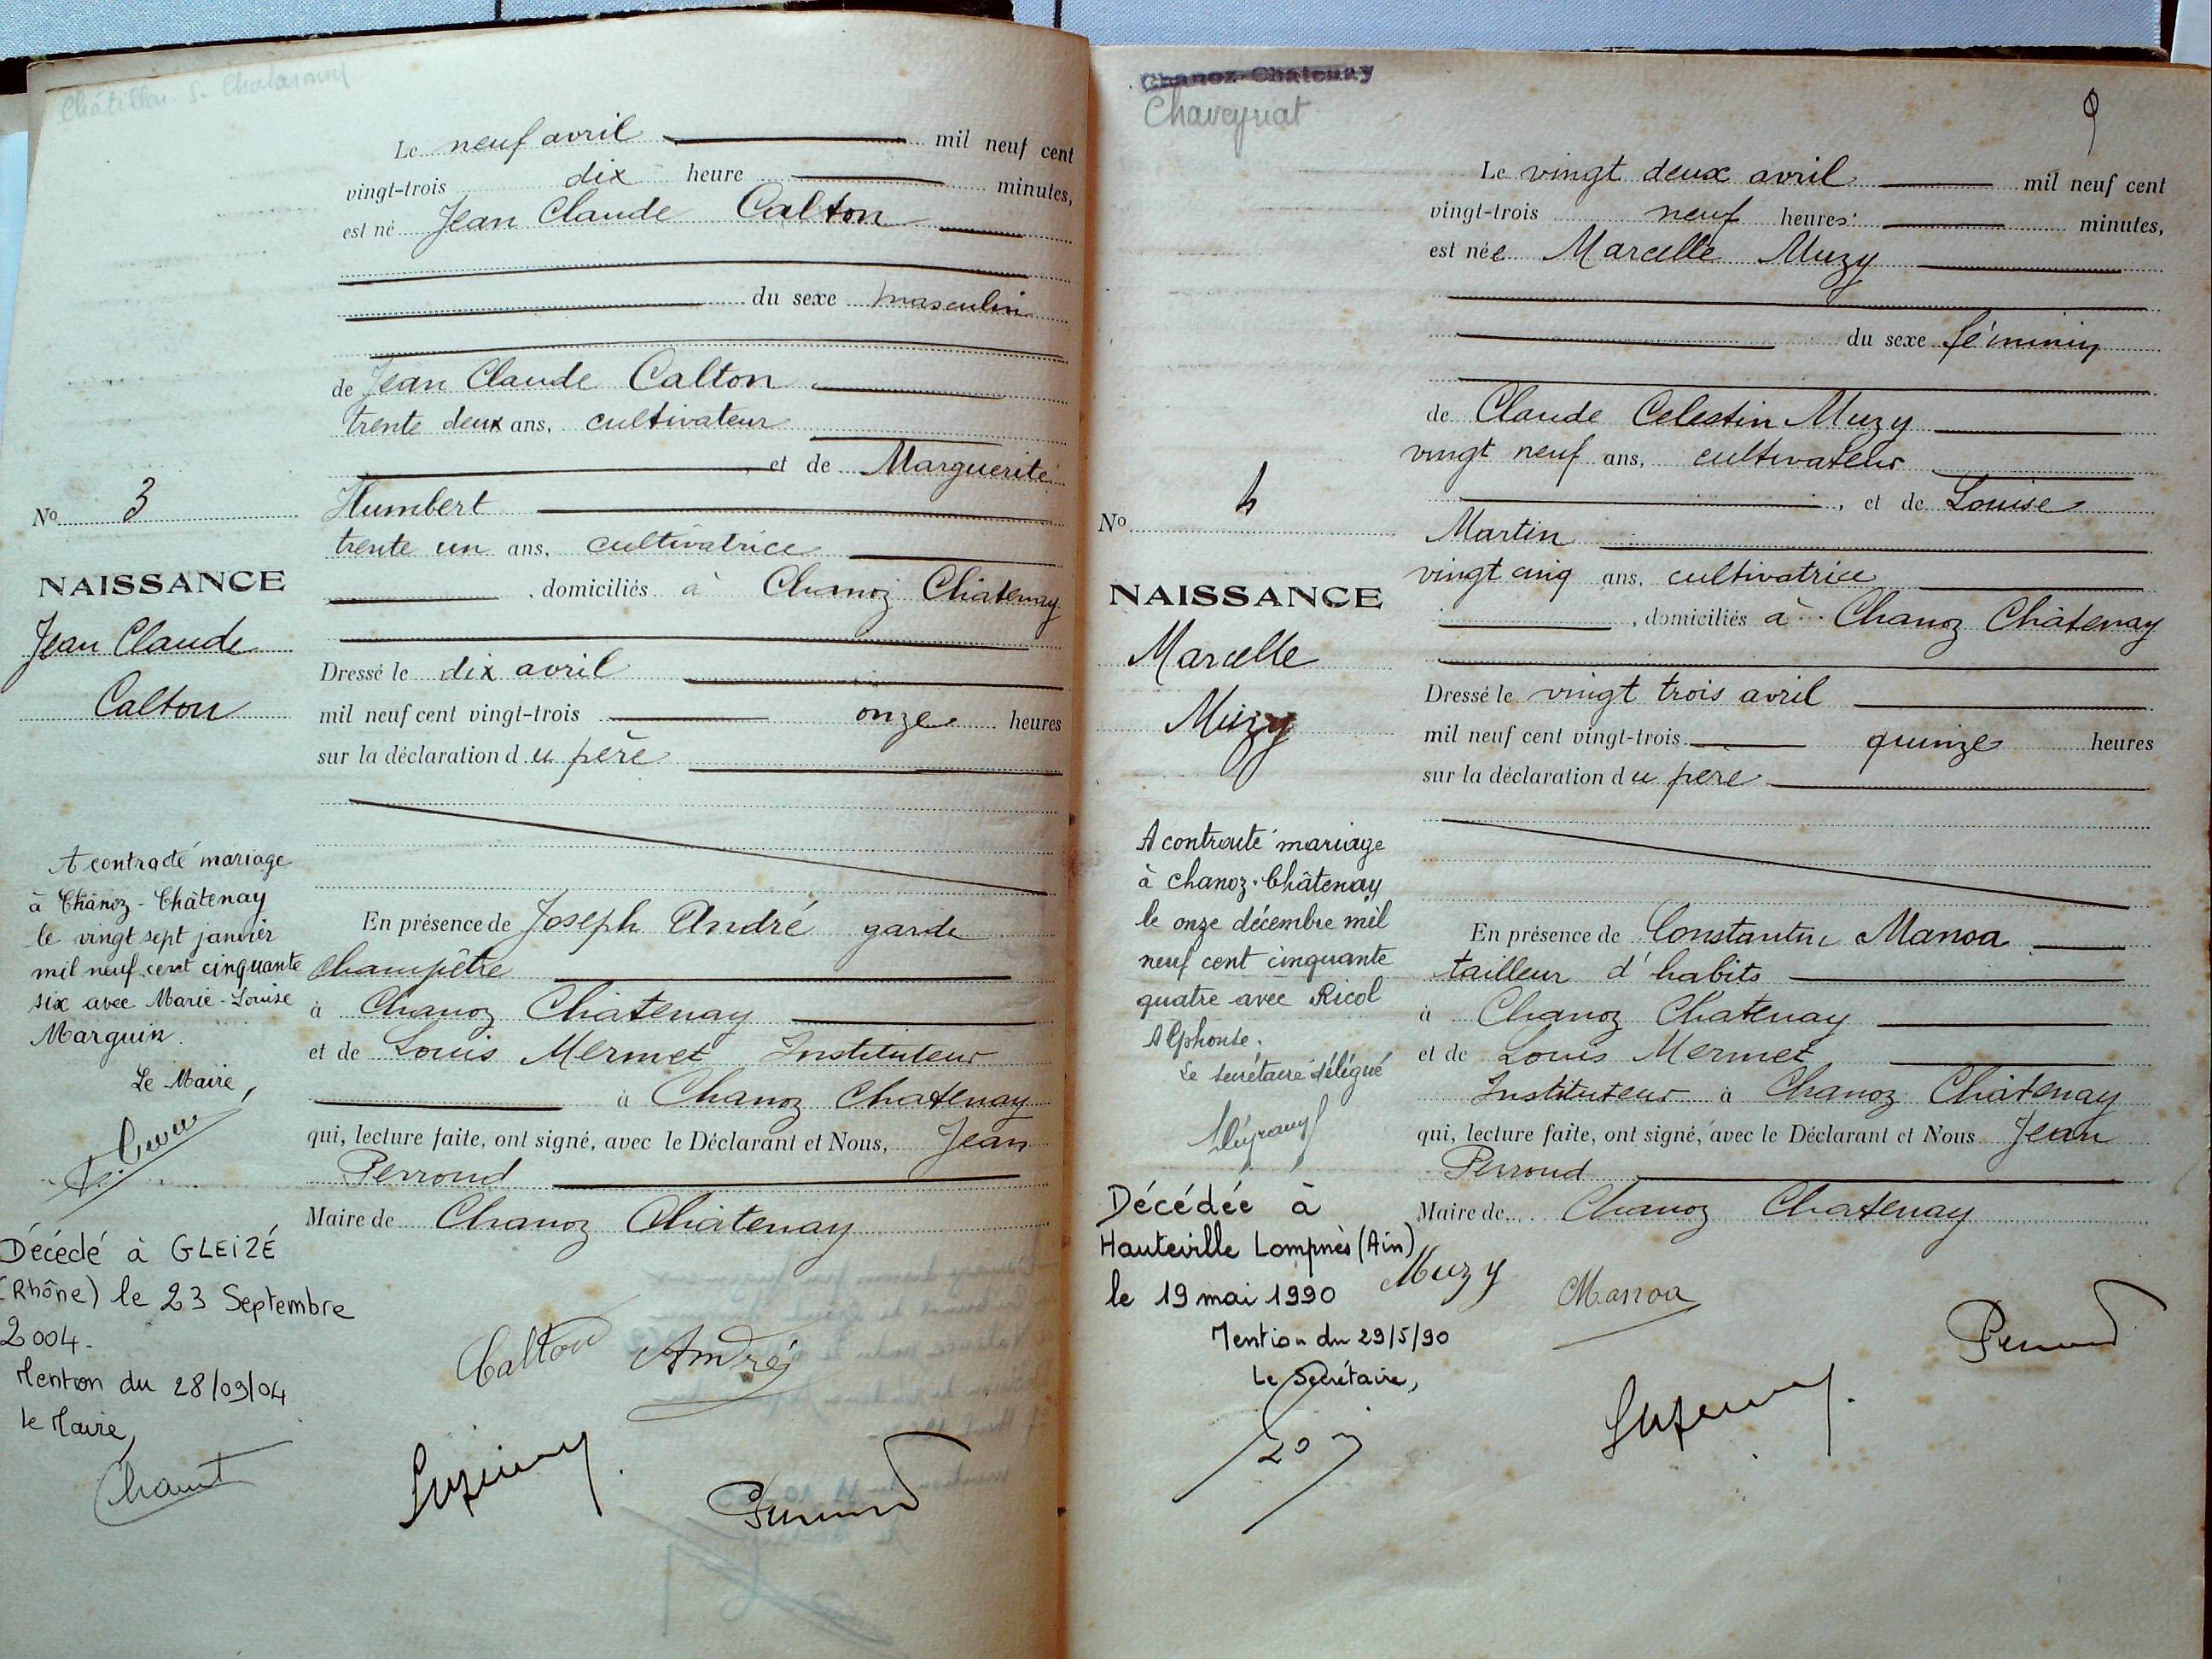 Châtillon-s-Chalaronne
Le neuf avril mil neuf cent
vingt-trois dix heure minutes,
est né Jean Claude Calton
du sexe masculin
de Jean Claude Calton
trente deux ans, cultivateur
et de Marguerite
Humbert
trente un ans, cultivatrice
, domiciliés à Chanoz Châtenay
Dressé le dix avril
mil neuf cent vingt-trois onze heures
sur la déclaration du père
En présence de Joseph André garde
champêtre
à Chanoz Chatenay
et de Louis Mermet Instituteur
à Chanoz Chatenay
qui, lecture faite, ont signé, avec le Déclarant et Nous, Jean
Perroud
Maire de Chanoz Châtenay
Calton André
Perroud
No 3
NAISSANCE
Jean Claude
Calton
A contracté mariage
à Chanoz-Châtenay
le vingt sept janvier
mil neuf cent cinquante
six avec Marie-Louise
Marguin.
Le Maire,
Décédé à GLEIZÉ
(Rhône) le 23 Septembre
2004.
Mention du 28/09/04
Le Maire,
Chanoz-Chatenay
Chaveyriat
9
Le vingt deux avril mil neuf cent
vingt-trois neuf heures minutes,
est née Marcelle Muzy
du sexe féminin
de Claude Celestin Muzy
vingt neuf ans, cultivateur
, et de Louise
Martin
vingt cinq ans, cultivatrice
, domiciliés à Chanoz Châtenay
Dressé le vingt trois avril
mil neuf cent vingt-trois quinze heures
sur la déclaration du père
En présence de Constantin Manoa
tailleur d'habits
à Chanoz Chatenay
et de Louis Mermet
Instituteur à Chanoz Châtenay
qui, lecture faite, ont signé, avec le Déclarant et Nous Jean
Perroud
Maire de Chanoz Chatenay
Muzy Manoa
Perroud
No 4
NAISSANCE
Marcelle
Muzy
A contracté mariage
à Chanoz-Châtenay
le onze décembre mil
neuf cent cinquante
quatre avec Ricol
Alphonse.
Le secrétaire délégué
Décédée à
Hauteville Lompnès (Ain)
le 19 mai 1990
Mention du 29/5/90
Le Secrétaire,